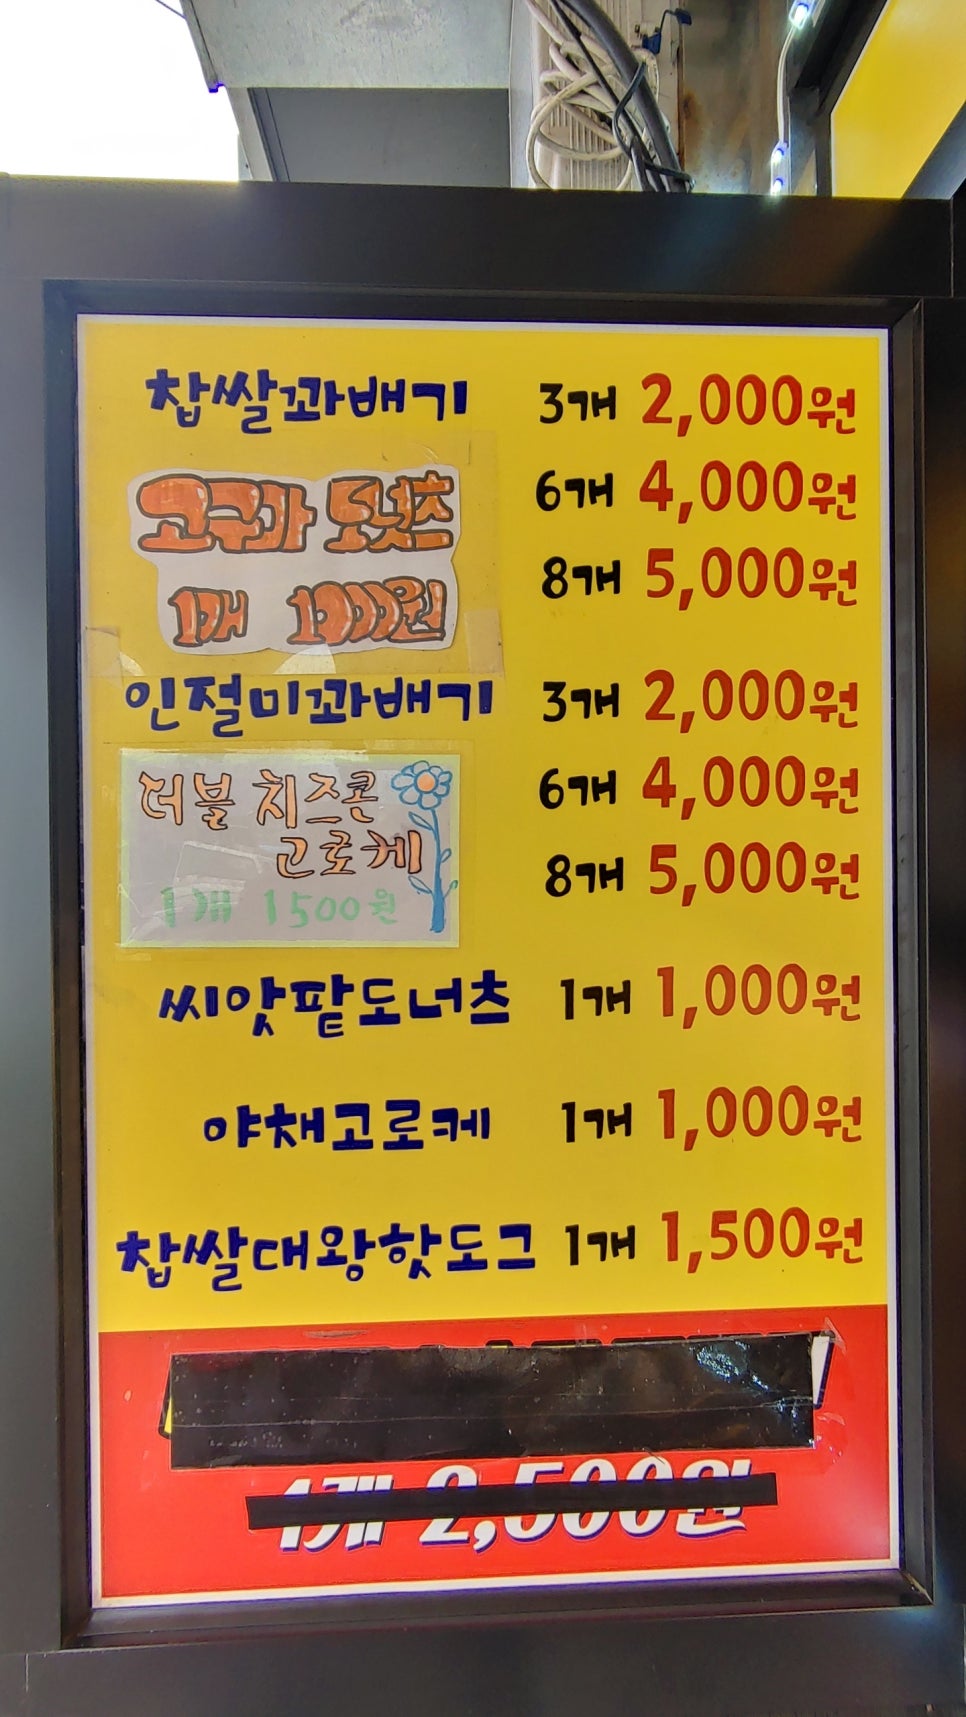 찹쌀꽈배기 3개 2,000원
6개 4,000원
고구마 도넛츠
1개 1000원
8개 5,000원
인절미꽈배기 3개 2,000원
6개 4,000원
더블 치즈콘
고로케
1개 1500원
8개 5,000원
씨앗팥도너츠 1개 1,000원
야채고로케 1개 1,000원
찹쌀대왕핫도그 1개 1,500원
1개 2,500원